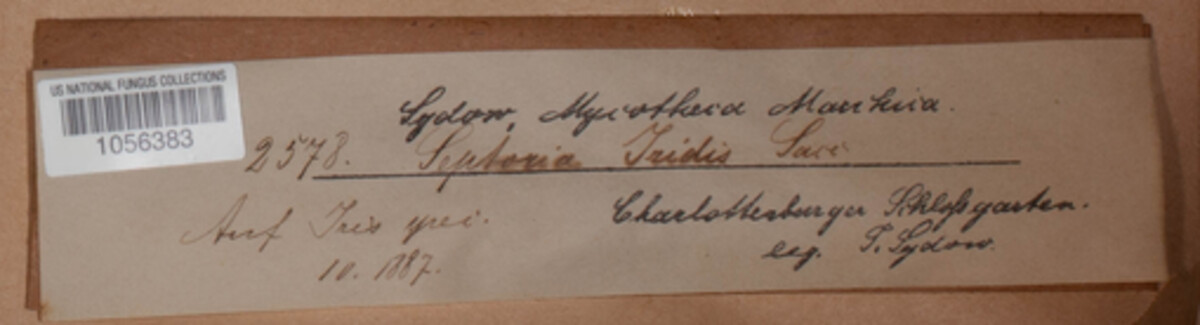 US NATIONAL FUNGUS COLLECTIONS
1056383
Sydow, Mycotheca Marchica.
2578. Septoria Iridis Sacc
Auf Iris spei.
10. 1887.
Charlottenburger Schloßgarten.
leg. P. Sydow.